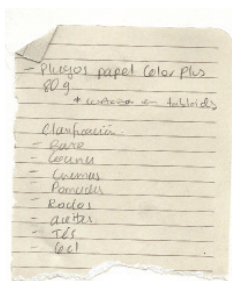 - Pliegos papel Color Plus
80 g
+ en tabloides
Clasificación.
- Base
- Cocina
- Cremas
- Pomadas
- Rodos
- aceites
- Tés
- Gel